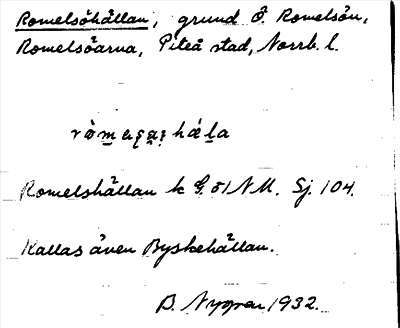 Romelsöhällan, grund Ö. Romelsön,
Romelsöarna, Piteå stad, Norrb. l.
Romelshällan k G. 51 N U. Sj. 104.
Kallas även Byskehällan.
B. Nygren 1932.